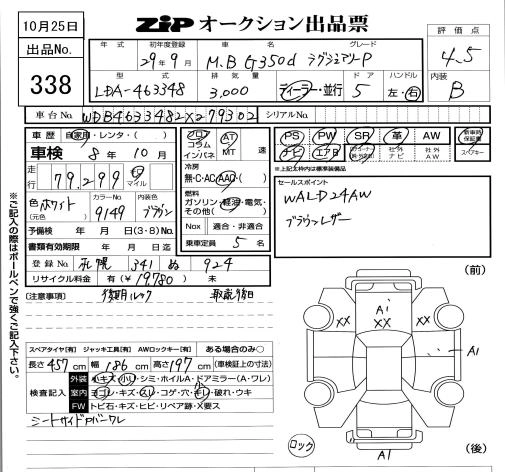 10月25日
ZiP オークション出品票
出品No.
338
年式 初年度登録 車名 グレード
29年9月 M.B G350d ラグジュアリーP
型式 排気量 ドア ハンドル
LDA-463348 3,000 ディーラー・並行 5 左・右
評価点
4.5
内装
B
車台No. WDB4633482X279302 シリアルNo.
車歴 自家用・レンタ・( )
車検 8年10月
走行 79,299 キロ マイル
色 ホワイト (元色) カラーNo. 9149 内装色 ブラウン
予備検 年 月 日(3・8)No.
書類有効期限 年 月 日迄
登録No. 札幌 341 ぬ 924
リサイクル料金 有(¥19,780) 未
フロア コラム インパネ AT MT 速
冷房
無・C・AC・AAC・( )
燃料
ガソリン・軽油・電気・その他( )
Nox 適合・非適合
乗車定員 5 名
PS PW SR 革 AW 新車時保証書
ナビ エアB 社外ナビ 社外AW スペアキー
※上記太枠内は標準装備品
セールスポイント
WALD24AW
ブラウンレザー
※ご記入の際はボールペンで強くご記入下さい。
[注意事項]
スペアタイヤ[有] ジャッキ工具[有] AWロックキー[有] ある場合のみ○
長さ457cm 幅186cm 高さ197cm (車検証上の寸法)
検査記入
外装 小キズ・小凹・シミ・ホイルA・ドアミラー(A・ワレ)
室内 ヨゴレ・キズ・スレ・コゲ・穴・キレ・破れ・ウキ
FW トビ石・キズ・ヒビ・リペア跡・X要ス
(前)
A1
XX XX XX
A1
ロック
A1
(後)